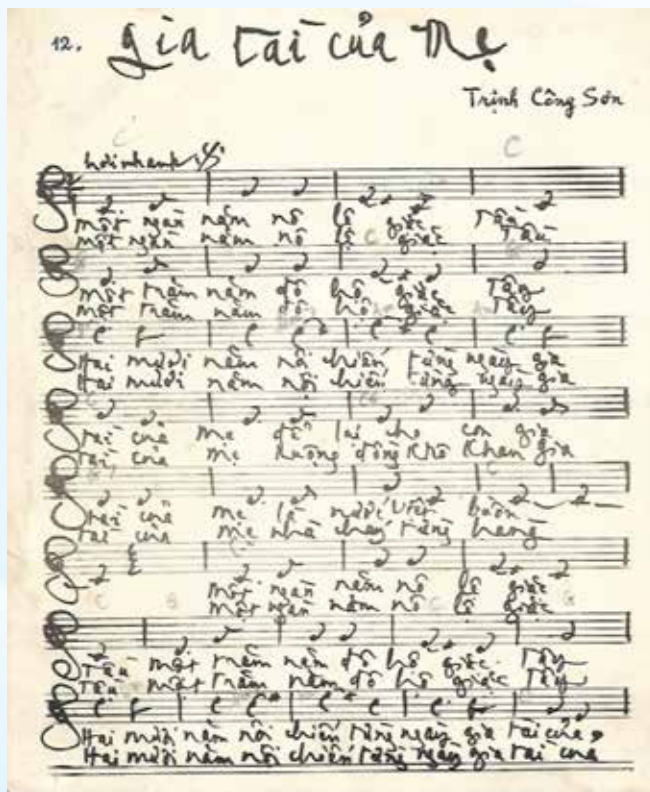 12. Gia tài của Mẹ
Trịnh Công Sơn
C C
hơi nhanh
Một ngàn năm nô lệ giặc Tàu
Một ngàn năm nô lệ giặc Tàu
Một trăm năm đô hộ giặc Tây
Một trăm năm đô hộ giặc Tây
Hai mươi năm nội chiến từng ngày gia
Hai mươi năm nội chiến từng ngày gia
tài của mẹ để lại cho con gia
tài của mẹ ruộng đồng khô khan gia
tài của mẹ là nước Việt buồn
tài của mẹ nhà cháy từng hàng
Một ngàn năm nô lệ giặc
Một ngàn năm nô lệ giặc
Tàu một trăm năm đô hộ giặc Tây
Tàu một trăm năm đô hộ giặc Tây
Hai mươi năm nội chiến từng ngày gia tài của
Hai mươi năm nội chiến từng ngày gia tài của